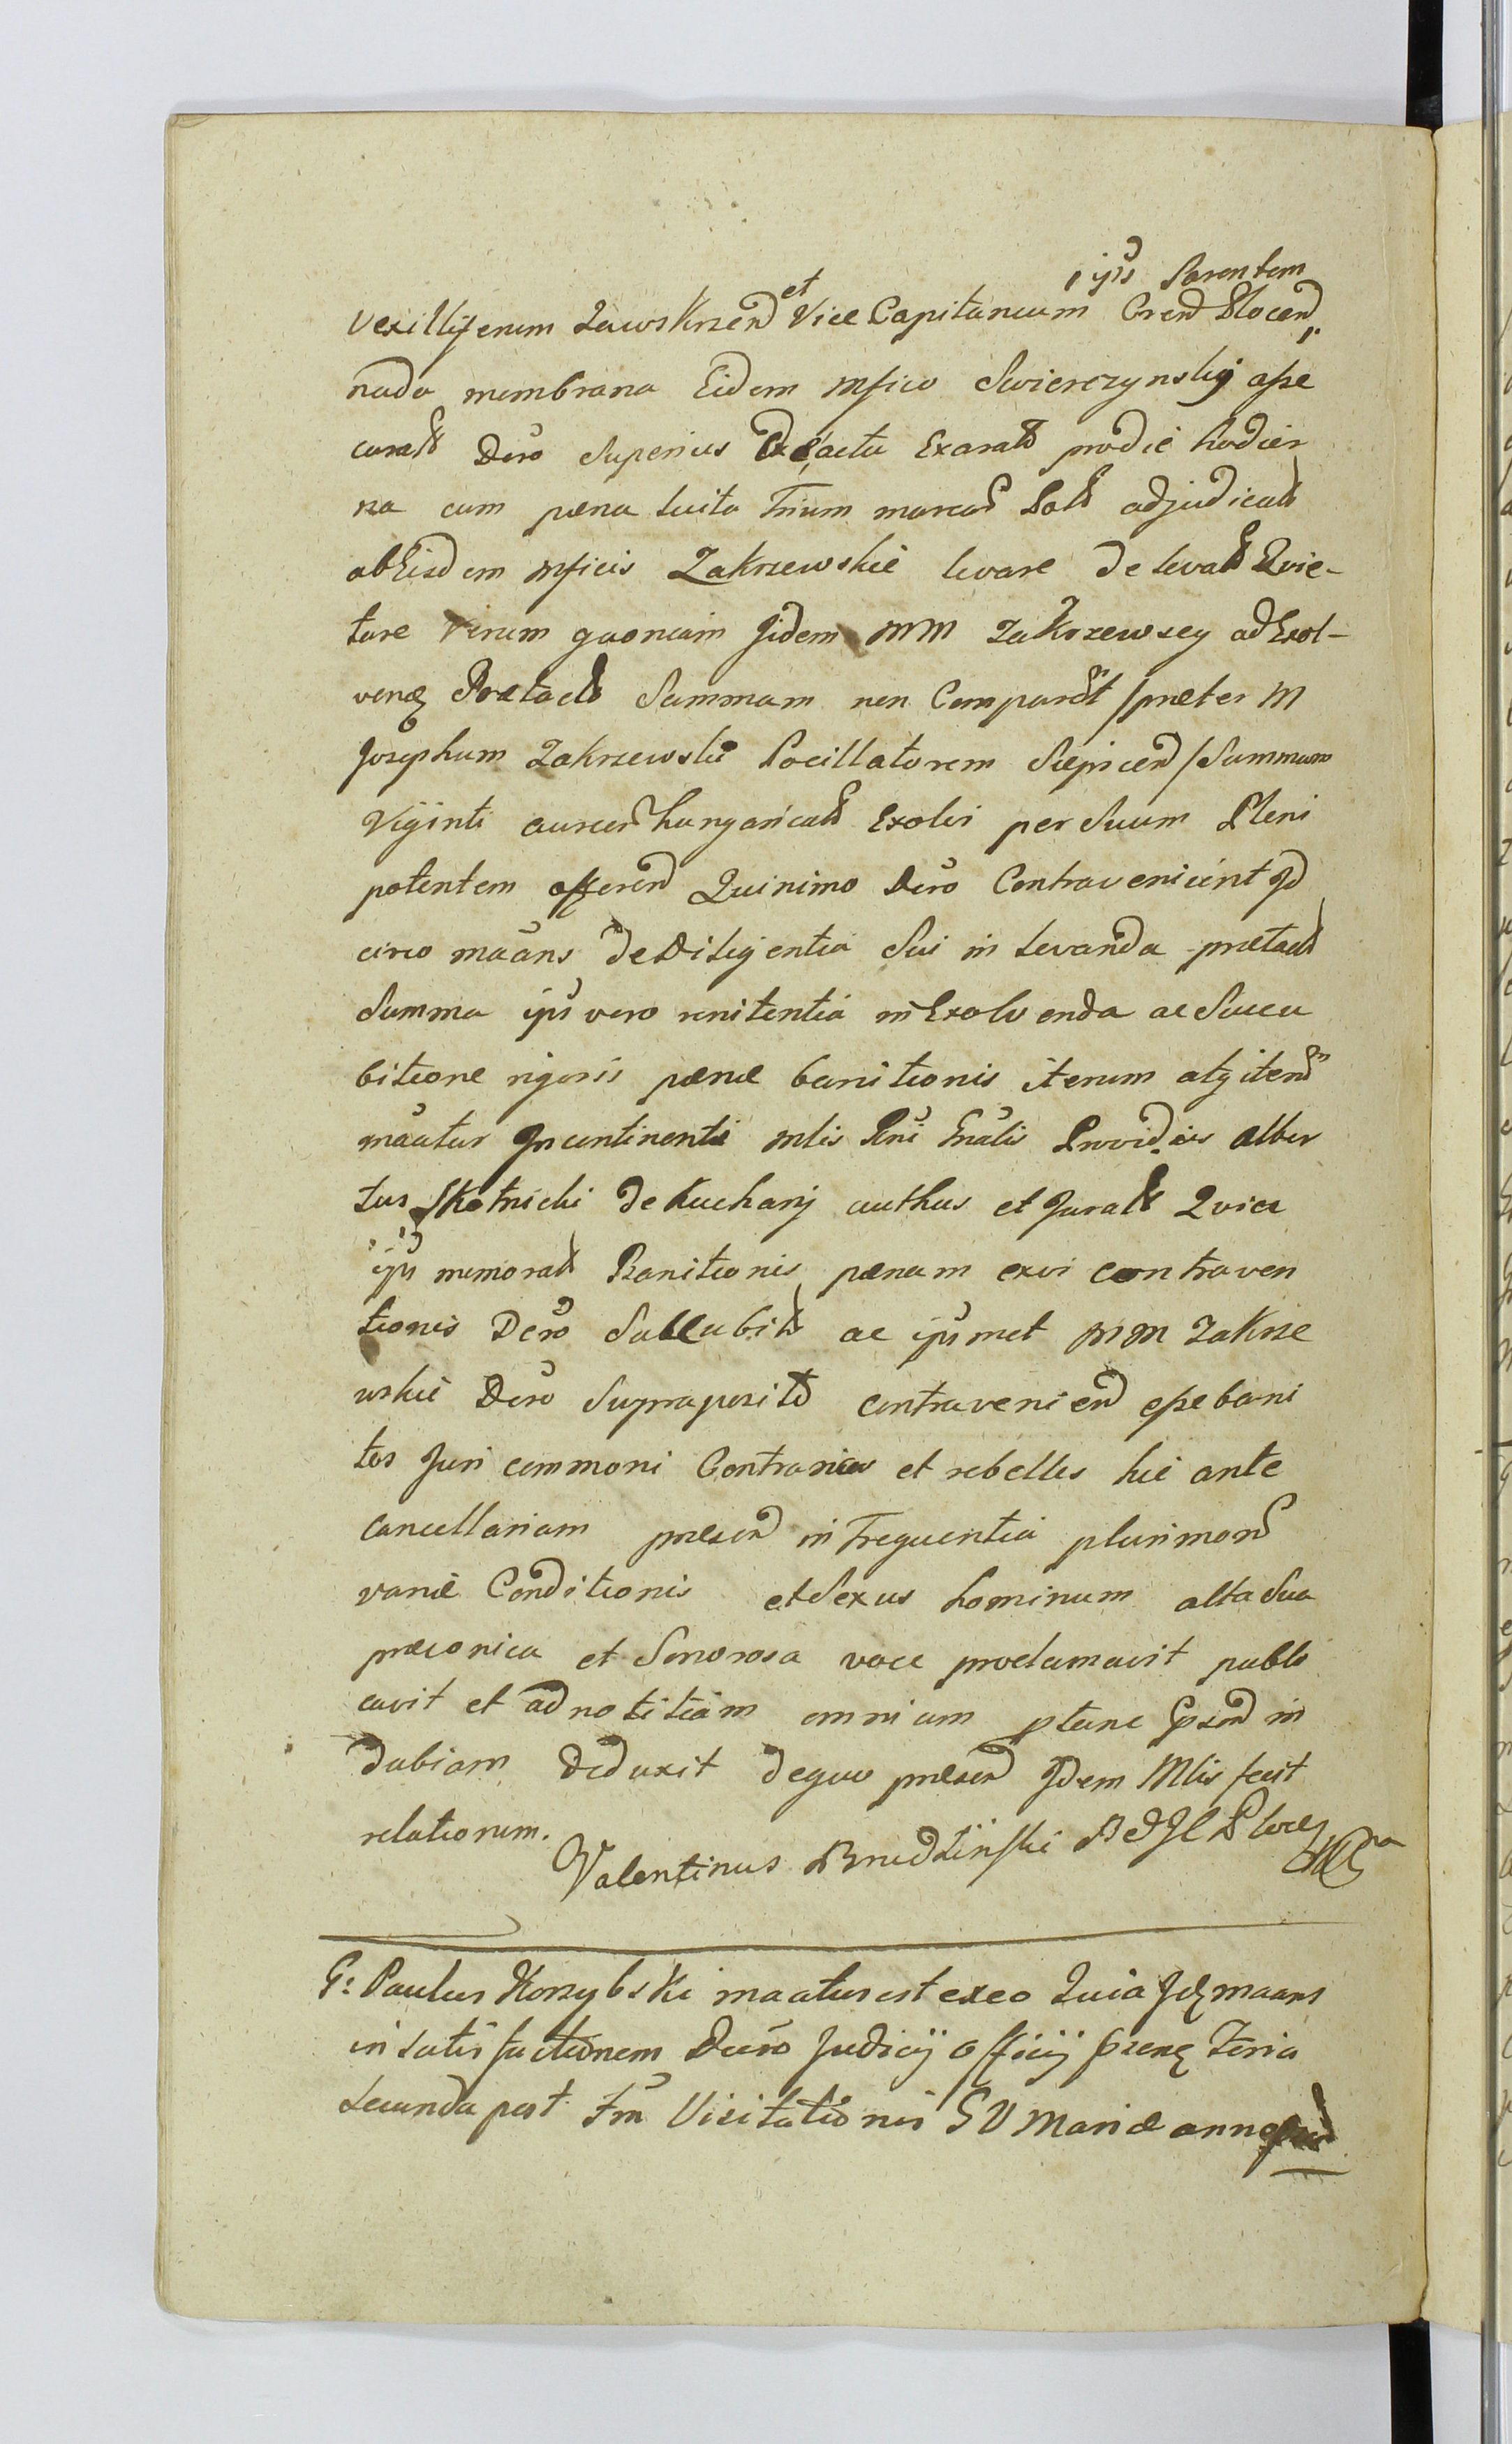 ijs Parentem
Vexilligerum Zawskrzen et Vice Capitaneum Cren Plocen
nuda membrana Eidem Mfico Swierczynskij asse
curat Dero Superius de actu Exarat pro die hodier
na cum pæna luita Trium marcar Pol adjudicat
ab Eisdem Mficis Zakrzewskie levare de levat Qvie-
tare Verum quoniam Jidem MM Zakrzewscy ad Exol-
vend Prætact Summam non Comparet /præter M
Josephum Zakrzewski Pocillatorem Sieprcen/ Summam
Viginti aureor hungaricat Exolvi per Suum Pleni
potentem offeren Quinimo Dero Contravenieint Jd
circo maans de Diligentia Sui in levanda prætact
Summa ips vero renitentia in Exolvenda ac Succu
bitione rigoris pænæ banitionis iterum atq iterum
maatur Jn continenti Mlis Rni Gnalis Provid eis Alber
tus Skotnicki de Kuchary authus et Jurat Qvia
ips memorat Banitionis pænam exvi contraven
tionis Dero Succubit ac ipsmet MM Zakrze
wskie Dero Supraposit contravenien esse bani
tos Juri commoni Contrarios et rebelles hic ante
Cancellariam præsen in Frequentia plurimor
variæ Conditionis et Sexus hominum alta Sua
præconica et Sonorosa voce proclamavit publi
cavit et ad notitiam omnium plane in
dubiam Deduxit de quo præsen Jdem Mlis fecit
relationem.
Valentinus Brudzinski
G: Paulus Korzybski maatus est ex eo Quia Jd maans
in satisfactionem Decro Judicij Officij præn Feria
secunda post Fm Visitationis S V Mariæ anno